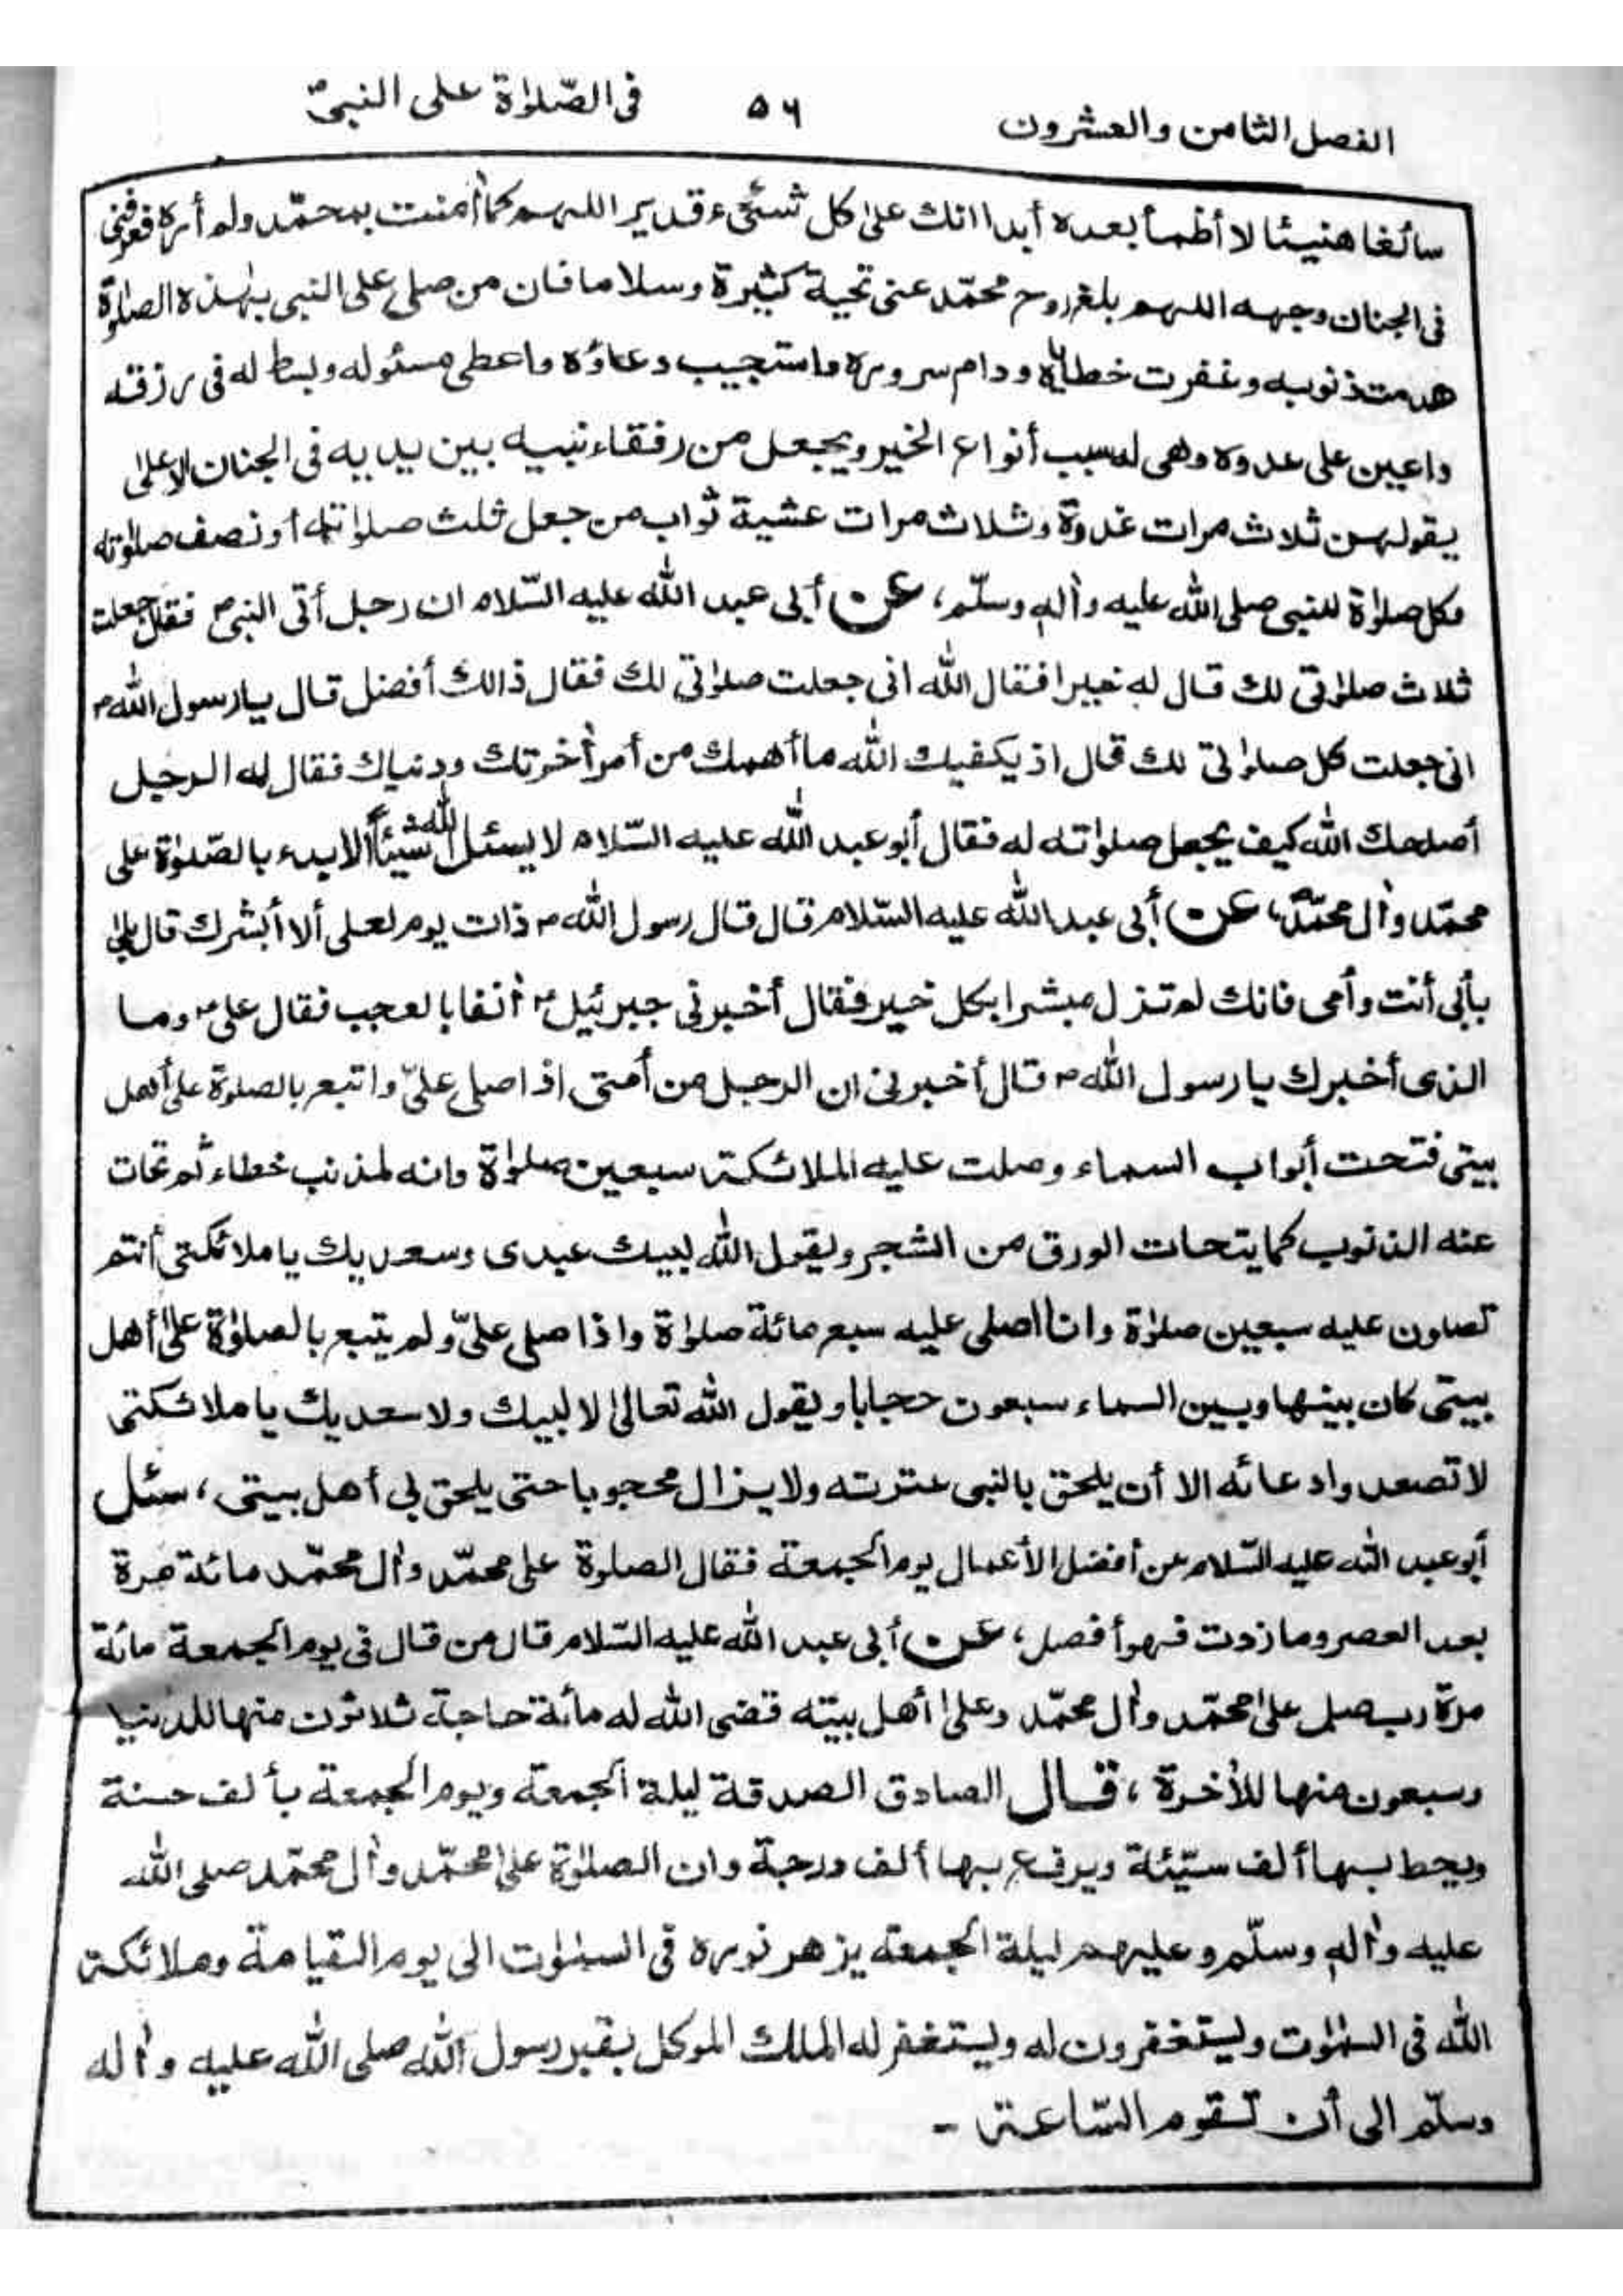 الفصل الثامن والعشرون ٥٦ فى الصّلوٰة على النبىّ ؐ
سائغا هنيئا لا أظمأ بعده أبدا انك علىٰ كل شئىء قدير اللهم كما اٰمنت بمحمّد ولم أره فعرفنى
فى الجنان وجهه اللهم بلغ روح محمّد عنى تحية كثيرة وسلاما فان من صلى على النبى بهٰذه الصلوٰة
هدمت ذنوبه وغفرت خطاياه ودام سروره واستجيب دعاؤه واعطى مسئوله وبسط له فى رزقه
واعين على عدوه وهى له سبب أنواع الخير ويجعل من رفقاء نبيه بين يديه فى الجنان الاعلىٰ
يقولهن ثلاث مرات غدوة وثلاث مرات عشية ثواب من جعل ثلث صلوٰته أو نصف صلوٰته
وكل صلوٰة للنبى صلى الله عليه واٰله وسلّم، عن أبى عبد الله عليه السّلام ان رجل أتى النبى ؐ فقال جعلت
ثلاث صلوٰتى لك قال له خيرا فقال الله انى جعلت صلوٰتى لك فقال ذالك أفضل قال يا رسول الله ؐ
انى جعلت كل صلوٰتى لك قال اذ يكفيك الله ما أهمك من أمر اٰخرتك ودنياك فقال له الرجل
أصلحك الله كيف يجعل صلوٰته له فقال أبو عبد الله عليه السّلام لا يسئل الله شيئاً الا بدء بالصّلوٰة على
محمّد واٰل محمّدؐ، عن أبى عبد الله عليه السّلام قال قال رسول الله ؐ ذات يوم لعلى ألا أبشرك قال بلىٰ
بأبى أنت وأمى فانك لم تزل مبشرا بكل خير فقال أخبرنى جبرئيل ؑ اٰنفا بالعجب فقال على ؑ وما
الذى أخبرك يا رسول الله ؐ قال أخبرنى ان الرجل من أمتى اذا صلى علىّ واتبع بالصلوة على أهل
بيتى فتحت أبواب السماء وصلت عليه الملائكة سبعين صلوٰة وانه لمذنب خطاء ثم تحات
عنه الذنوب كما يتحات الورق من الشجر ويقول الله لبيك عبدى وسعديك يا ملائكتى أنتم
تصلون عليه سبعين صلوٰة وانا اصلى عليه سبع مائة صلوٰة واذا صلى علىّ ولم يتبع بالصلوٰة علىٰ أهل
بيتى كان بينها وبين السماء سبعون حجابا ويقول الله تعالىٰ لا لبيك ولا سعديك يا ملائكتى
لا تصعدوا دعائه الا أن يلحق بالنبى عترته ولا يزال محجوبا حتى يلحق بى أهل بيتى، سئل
أبو عبد الله عليه السّلام عن أفضل الأعمال يوم الجمعة فقال الصلوة على محمّد واٰل محمّد مائة مرة
بعد العصر وما زدت فهو أفضل، عن أبى عبد الله عليه السّلام قال من قال فى يوم الجمعة مائة
مرّة رب صل علىٰ محمّد واٰل محمّد وعلىٰ أهل بيته قضى الله له مائة حاجة ثلاثون منها للدنيا
وسبعون منها للاٰخرة، قال الصادق الصدقة ليلة الجمعة ويوم الجمعة بألف حسنة
ويحط بها ألف سيّئة ويرفع بها ألف درجة وان الصلوٰة علىٰ محمّد واٰل محمّد صلى الله
عليه واٰله وسلّم وعليهم ليلة الجمعة يزهر نوره فى السمٰوٰت الى يوم القيامة وملائكة
الله فى السمٰوٰت وليستغفرون له وليستغفر له الملك الموكل بقبر رسول الله صلى الله عليه واٰله
وسلّم الى أن تقوم السّاعة -